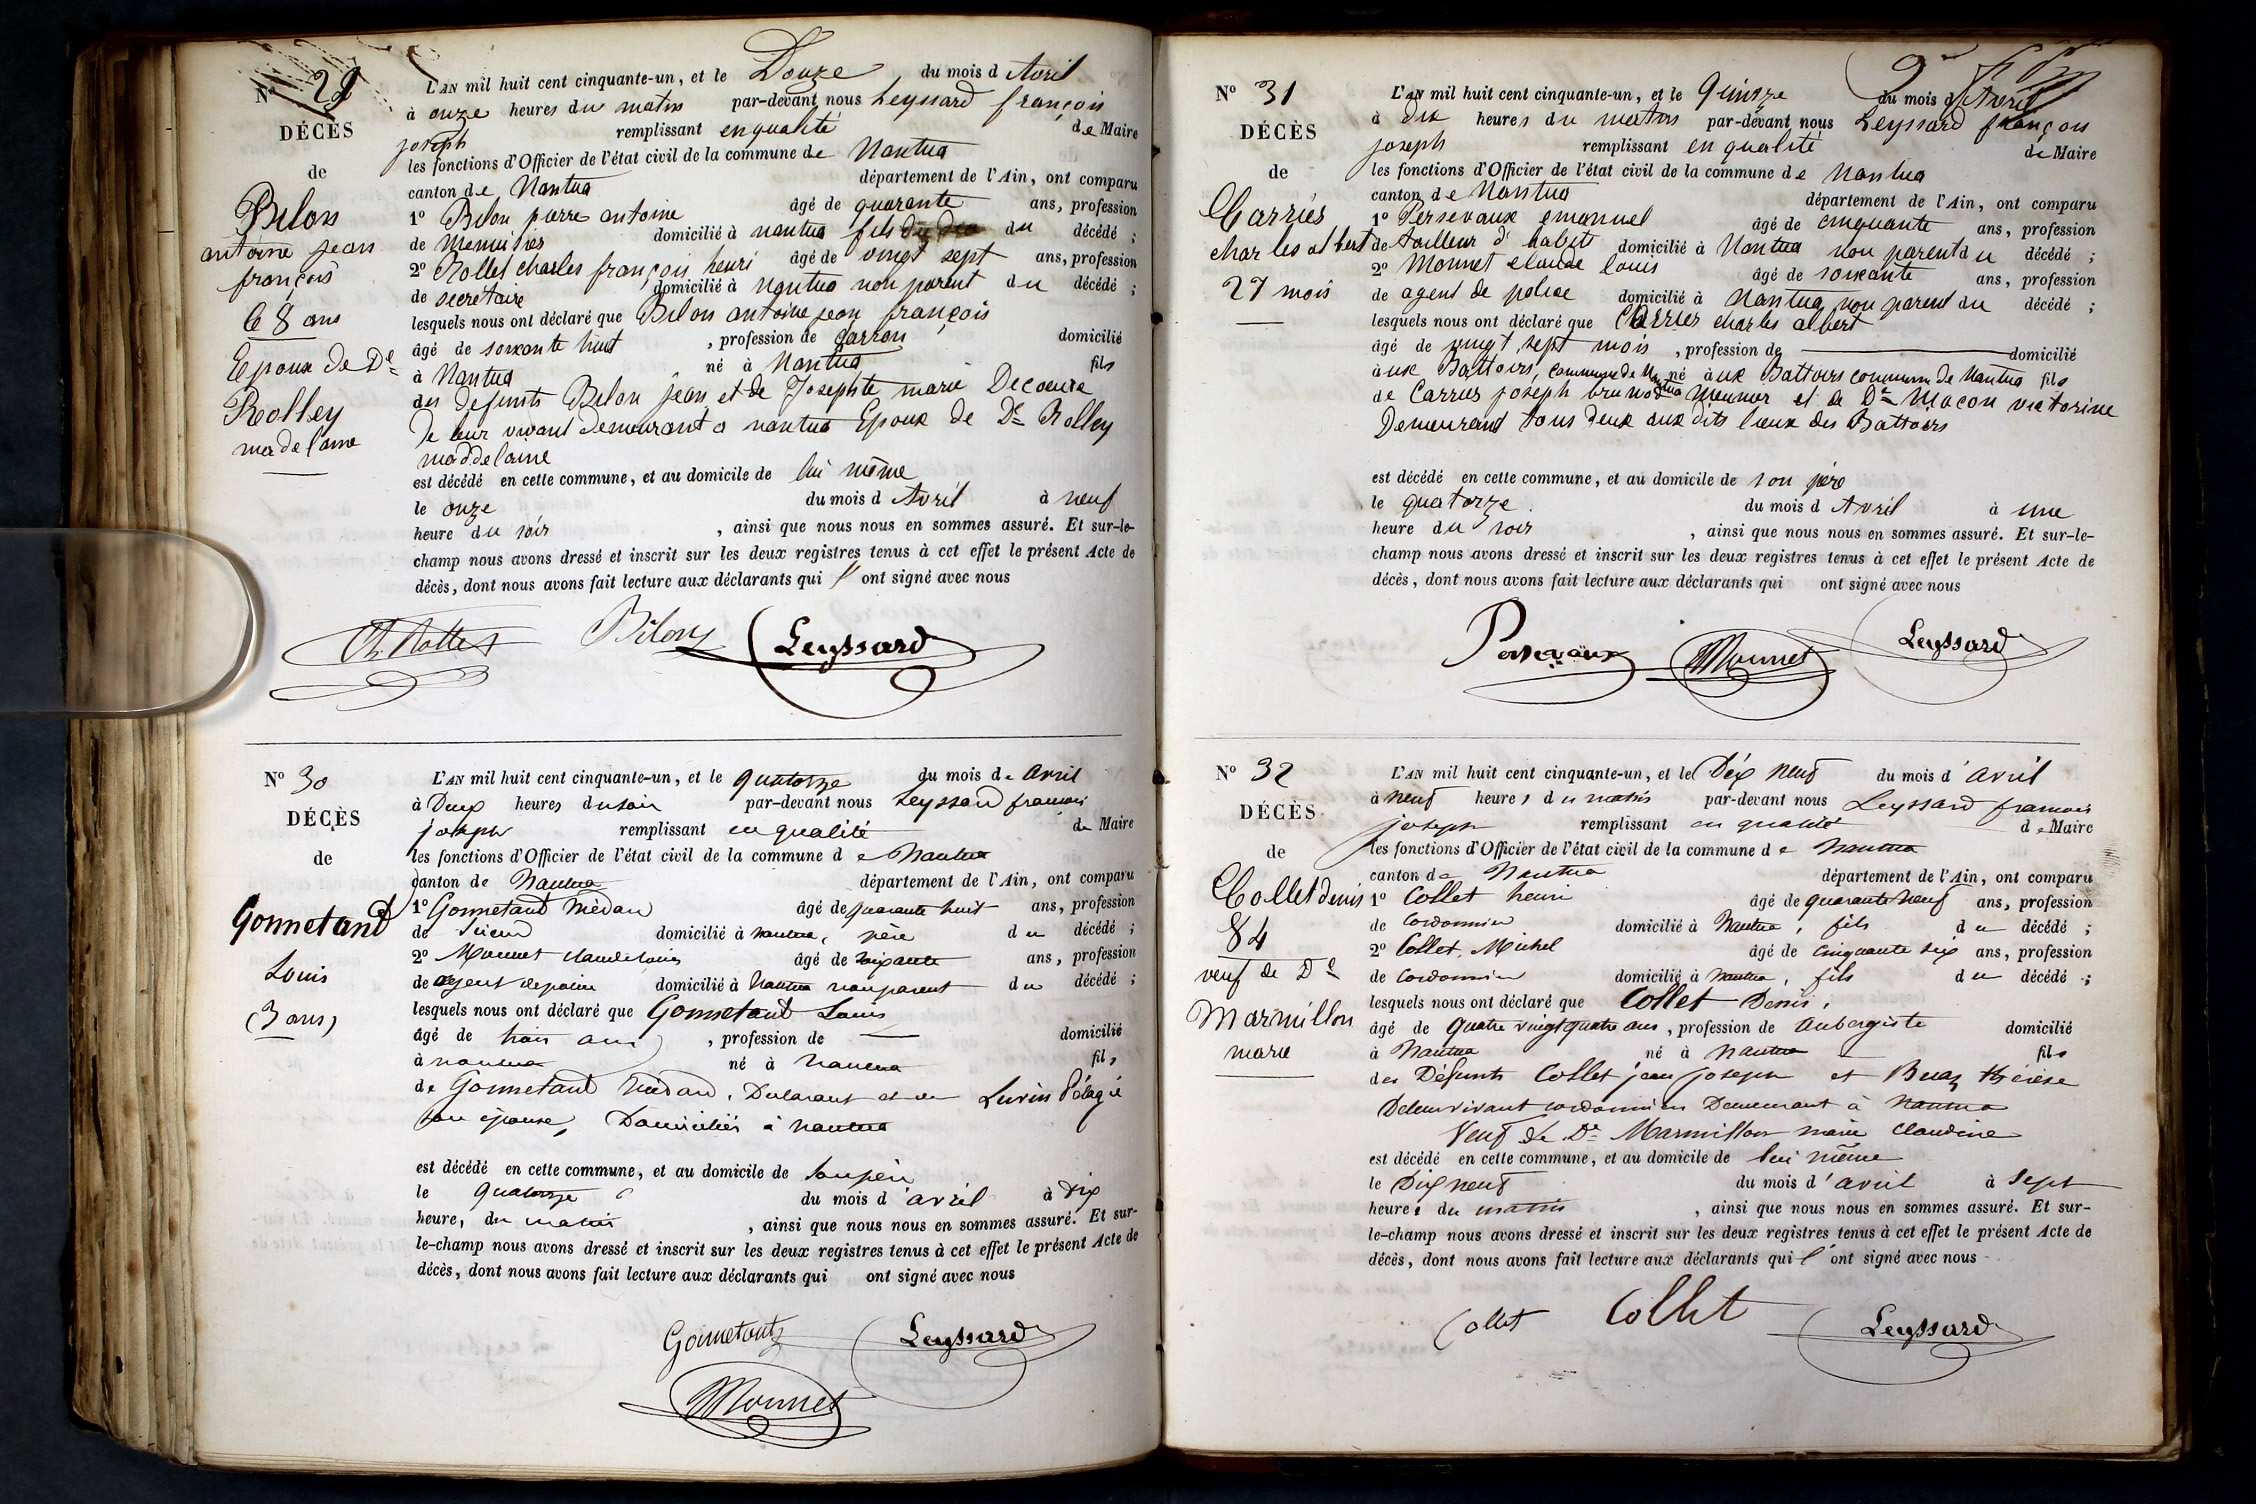 N° 29
DÉCÈS
de
Bilon
antoine jean
françois
68 ans
Epoux de De
Rolley
madelaine
L'AN mil huit cent cinquante-un, et le Douze du mois d Avril
à onze heures du matin par-devant nous Leyssard françois
joseph remplissant en qualité de Maire
les fonctions d'Officier de l'état civil de la commune de Nantua
canton de Nantua département de l'Ain, ont comparu
1° Bilon pierre antoine âgé de quarante ans, profession
de Menuisier domicilié à nantua fils du décédé ;
2° Rollet charles françois henri âgé de vingt sept ans, profession
de secrétaire domicilié à nantua non parent du décédé ;
lesquels nous ont déclaré que Bilon antoine jean françois
âgé de soixante huit , profession de domicilié
à Nantua né à Nantua fils
des defunts Bilon jean et de Josephte marie Decoeure
De leur vivant demeurant a nantua Epoux de De Rolley
maddelaine
est décédé en cette commune, et au domicile de lui même
le onze du mois d Avril à neuf
heure du soir , ainsi que nous nous en sommes assuré. Et sur-le-
champ nous avons dressé et inscrit sur les deux registres tenus à cet effet le présent Acte de
décès, dont nous avons fait lecture aux déclarants qui l' ont signé avec nous
Ch. Rollet Bilon Leyssard
N° 30
DÉCÈS
de
Gonnetand
Louis
(3 ans)
L'AN mil huit cent cinquante-un, et le quatorze du mois de avril
à Deux heures du soir par-devant nous Leyssard françois
joseph remplissant en qualité de Maire
les fonctions d'Officier de l'état civil de la commune de Nantua
canton de Nantua département de l'Ain, ont comparu
1° Gonnetand Médard âgé de quarante huit ans, profession
de Scieur domicilié à nantua, père du décédé ;
2° Monnet claude louis âgé de soixante ans, profession
de agent de police domicilié à Nantua non parent du décédé ;
lesquels nous ont déclaré que Gonnetand Louis
âgé de trois ans , profession de domicilié
à nantua né à nantua fils
de Gonnetand Médard, Déclarant et de Lurin Pélagie
son épouse, Domiciliés à nantua
est décédé en cette commune, et au domicile de son père
le quatorze du mois d'avril à dix
heure, du matin , ainsi que nous nous en sommes assuré. Et sur-
le-champ nous avons dressé et inscrit sur les deux registres tenus à cet effet le présent Acte de
décès, dont nous avons fait lecture aux déclarants qui ont signé avec nous
Gonnetant Leyssard
Monnet
N° 31
DÉCÈS
de
Carriés
charles albert
27 mois
L'AN mil huit cent cinquante-un, et le Quinze du mois d'Avril
à dix heures du matin par-devant nous Leyssard françois
joseph remplissant en qualité de Maire
les fonctions d'Officier de l'état civil de la commune de Nantua
canton de Nantua département de l'Ain, ont comparu
1° Persevaux emanuel âgé de cinquante ans, profession
de tailleur d'habits domicilié à Nantua non parent du décédé ;
2° Monnet claude louis âgé de soixante ans, profession
de agent de police domicilié à Nantua non parent du décédé ;
lesquels nous ont déclaré que Carries charles albert
âgé de vingt sept mois , profession de domicilié
à ux Battoirs, commune de Nantua né à ux Battoirs commune de Nantua fils
de Carries joseph bruno Meunier et de De Macon victorine
Demeurant tous deux aux dits lieux des Battoirs
est décédé en cette commune, et au domicile de son père
le quatorze du mois d Avril à une
heure du soir , ainsi que nous nous en sommes assuré. Et sur-le-
champ nous avons dressé et inscrit sur les deux registres tenus à cet effet le présent Acte de
décès, dont nous avons fait lecture aux déclarants qui ont signé avec nous
Persevaux Monnet Leyssard
N° 32
DÉCÈS
de
Collet denis
84
veuf de De
Marmillon
marie
L'AN mil huit cent cinquante-un, et le Dix neuf du mois d'avril
à neuf heures du matin par-devant nous Leyssard francois
joseph remplissant en qualité de Maire
les fonctions d'Officier de l'état civil de la commune de Nantua
canton de Nantua département de l'Ain, ont comparu
1° Collet henri âgé de quarante neuf ans, profession
de Cordonnier domicilié à Nantua, fils du décédé ;
2° Collet, Michel âgé de cinquante six ans, profession
de Cordonnier domicilié à Nantua, fils du décédé ;
lesquels nous ont déclaré que Collet Denis,
âgé de Quatre vingt quatre ans , profession de Aubergiste domicilié
à Nantua né à Nantua fils
des Défunts Collet jean joseph et Buaz thérèse
De leur vivant cordonnier Demeurant à Nantua
Veuf de De Marmillon marie Claudine
est décédé en cette commune, et au domicile de lui même
le Dix neuf du mois d'avril à Sept
heures du matin , ainsi que nous nous en sommes assuré. Et sur-
le-champ nous avons dressé et inscrit sur les deux registres tenus à cet effet le présent Acte de
décès, dont nous avons fait lecture aux déclarants qui l' ont signé avec nous
Collet Collet Leyssard